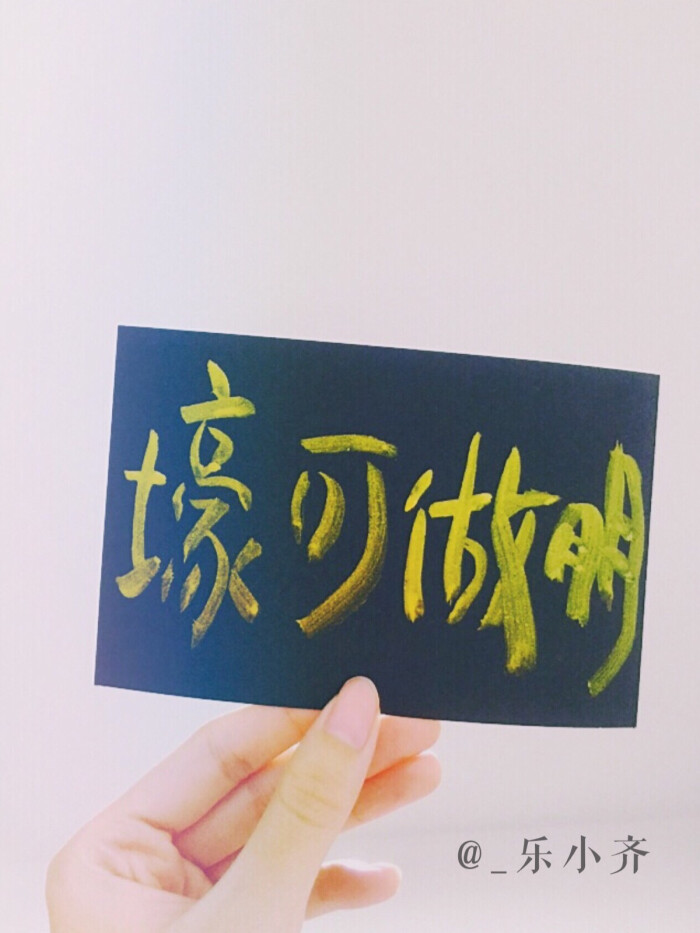 壕可做明
@_乐小齐